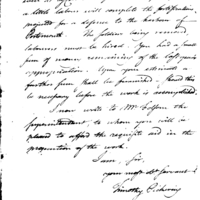 a little labour will complete the fortification
projected for a defence to the harbour of
Portsmouth. The soldiers being removed
labourers must be hired. You had a small
sum of money remaining of the last year's
appropriation. Upon your estimate a
further sum shall be furnished. Should this
be necessary before the work is accomplished
I now write to Mr. the
Superintendant, to whom you will be
pleased to afford the requisite aid in the
prosecution of the work.
I am, Sir,
your most obt servant
Timothy Pickering